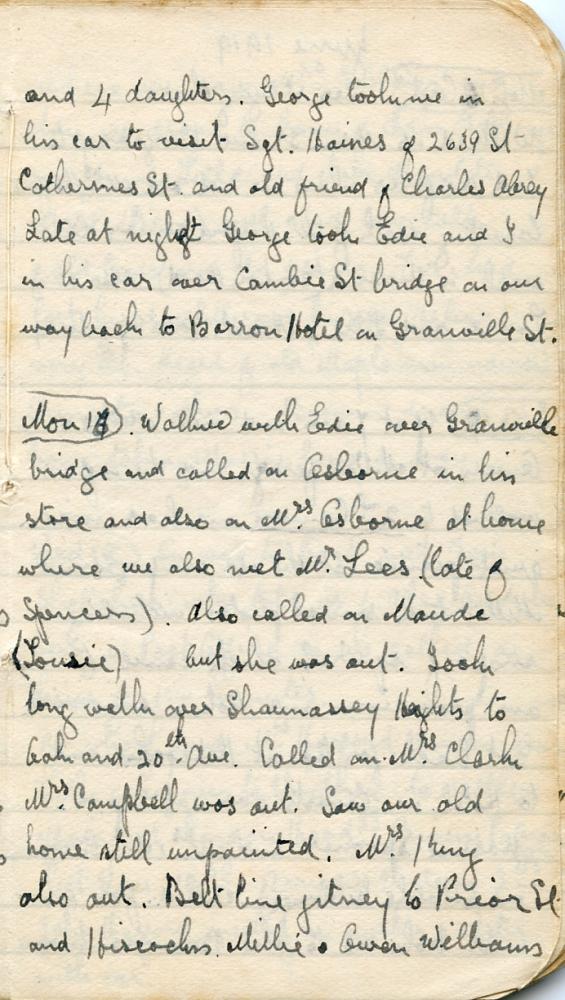 and 4 daughters. George took me in
his car to visit Sgt. Haines of 2639 St
Catherines St. and old friend of Charles Abrey
Late at night George took Edie and I
in his car over Cambie St bridge on our
way back to Barron Hotel on Granville St.
Mon 16. Walked with Edie over Granville
bridge and called on Osborne in his
store and also on Mrs Osborne at home
where we also met Mr Lees (late of
Spencers). Also called on Maude
(Lousie) but she was out. Took
long walk over Shaunassey Heights to
Oak and 20th Ave. Called on Mrs Clark
Mrs Campbell was out. Saw our old
home still unpainted. Mrs King
also out. Belt line jitney to Prior St
and Hiscocks. Millie & Owen Williams